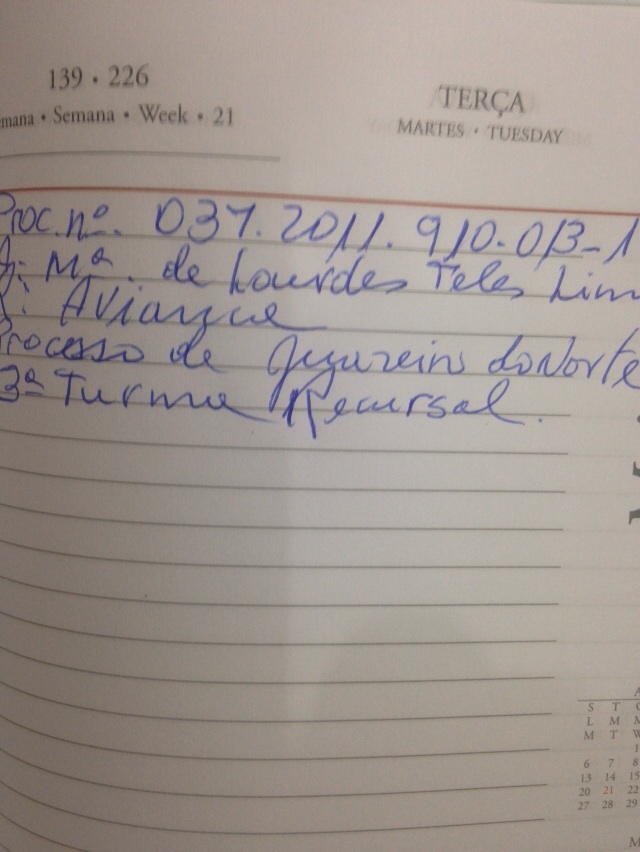 139 • 226
mana • Semana • Week • 21
TERÇA
MARTES • TUESDAY
Proc. nº. 037.2011.910.013-1
Mª. de Lourdes Teles Lim
Avianca
Processo de Juazeiro do Norte
3ª Turma Recursal.
S T
L M M
M T W
1
6 7 8
13 14 15
20 21 22
27 28 29